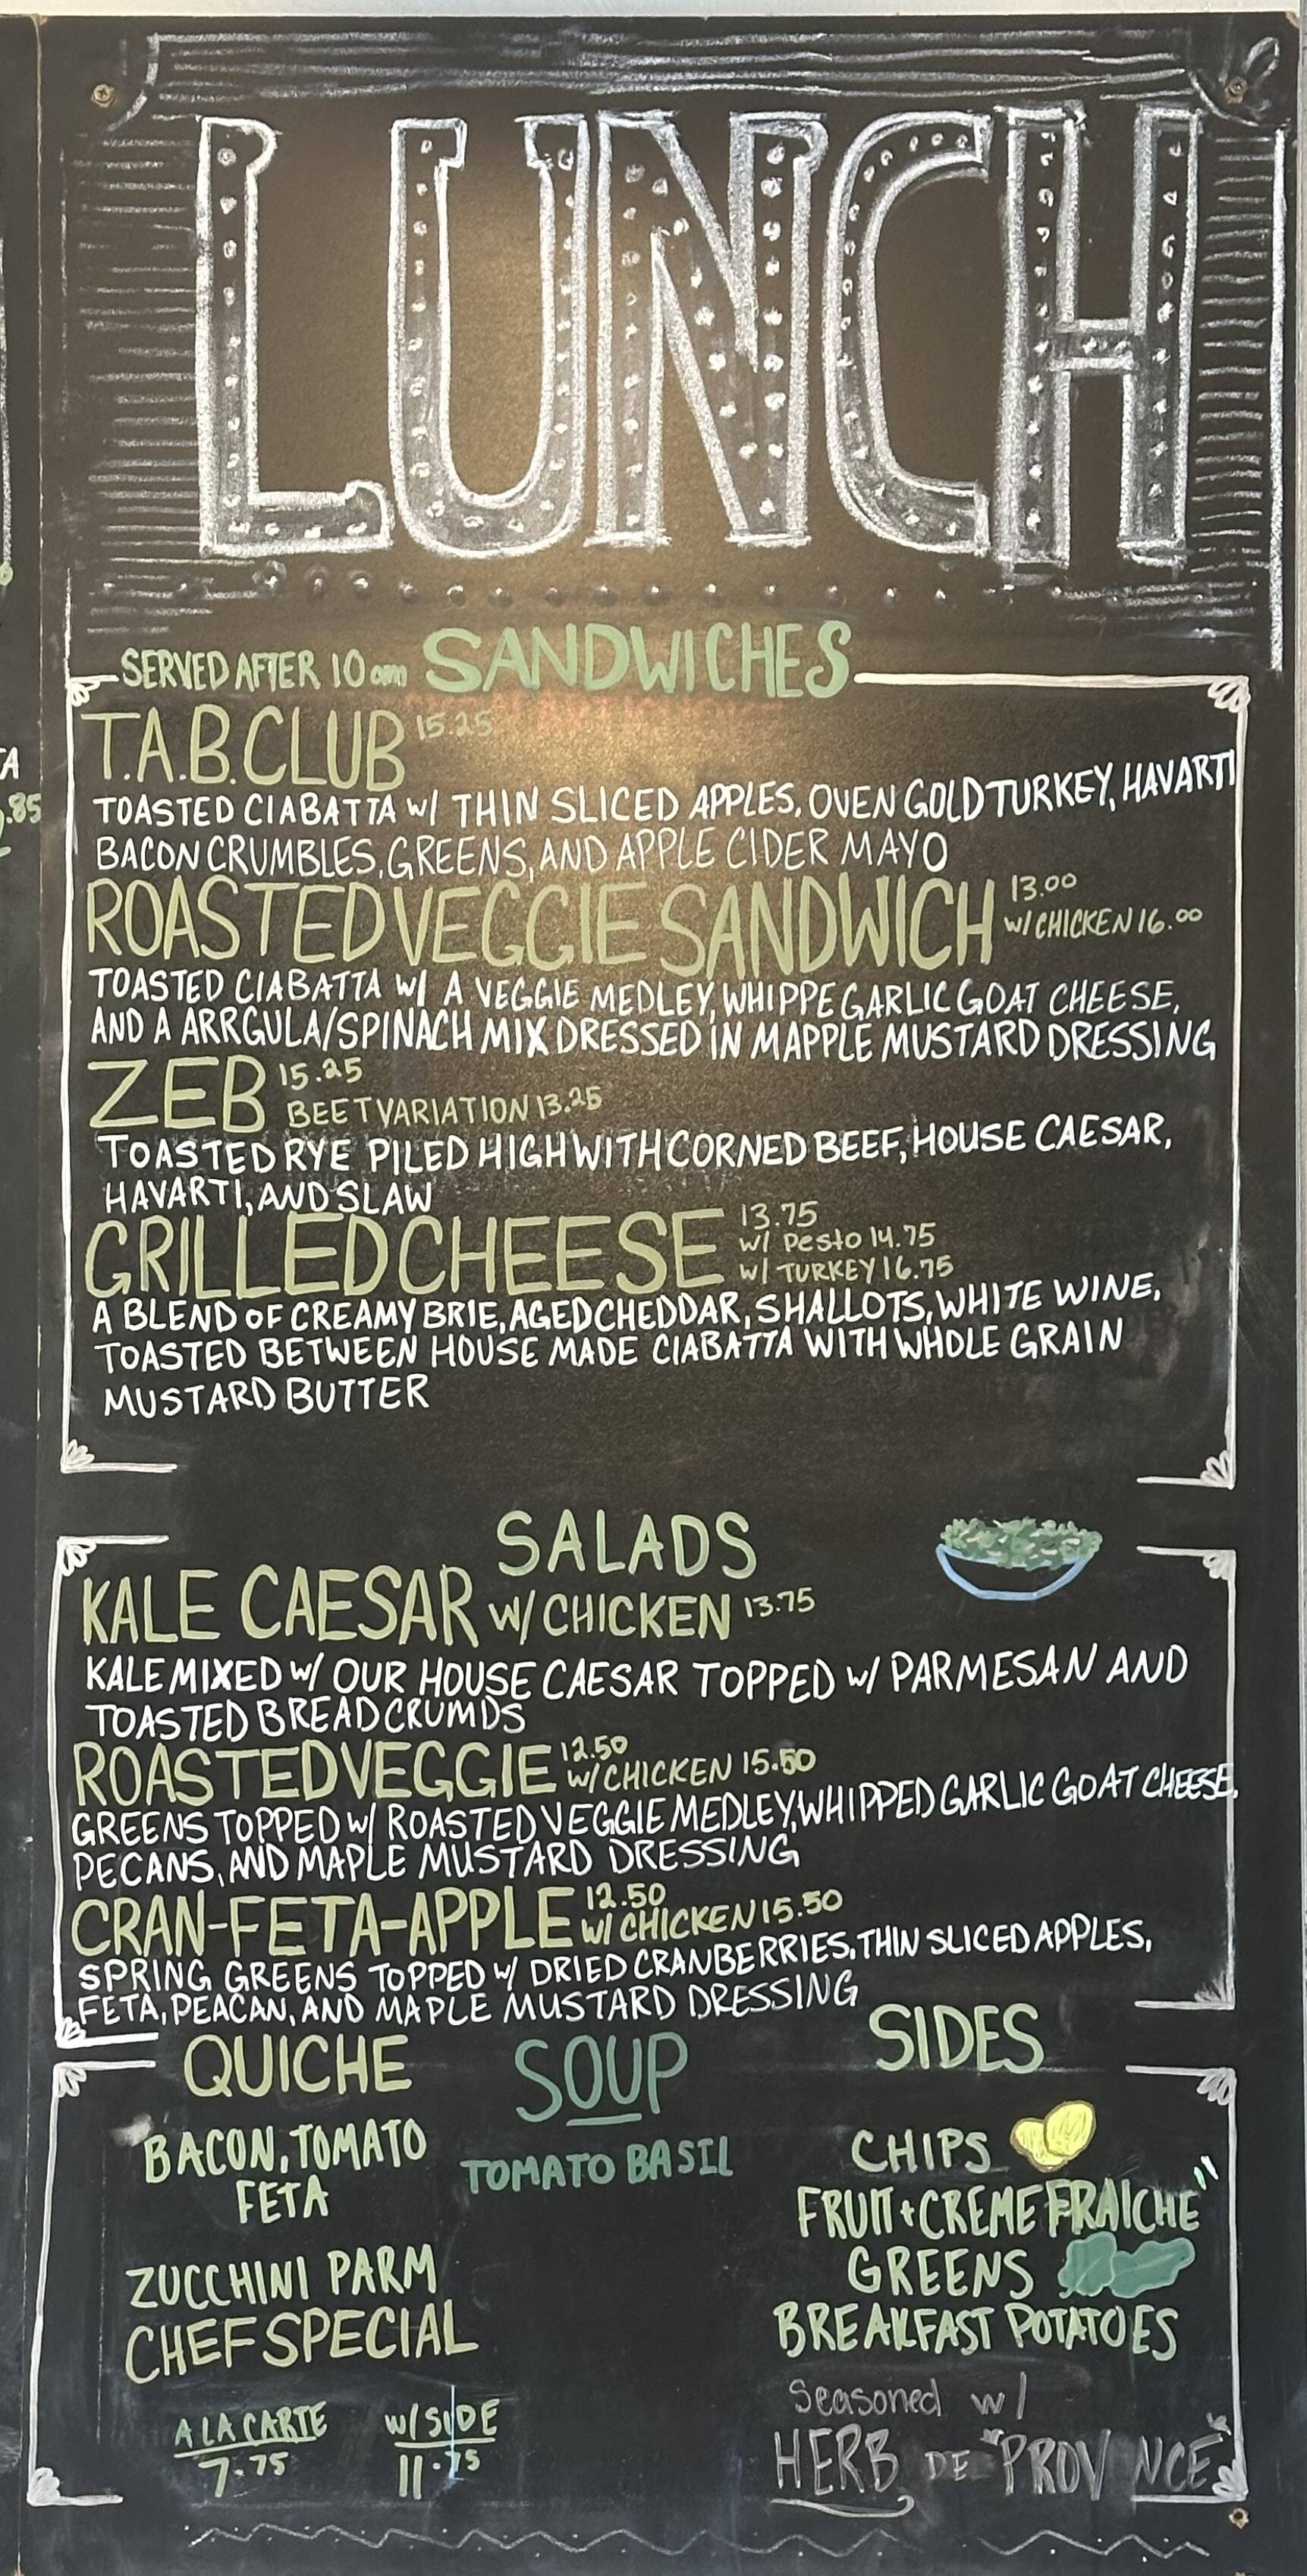 LUNCH
SERVED AFTER 10am SANDWICHES
T.A.B. CLUB 15.25
TOASTED CIABATTA W/ THIN SLICED APPLES, OVEN GOLD TURKEY, HAVARTI
BACON CRUMBLES, GREENS, AND APPLE CIDER MAYO
ROASTED VEGGIE SANDWICH 13.00
W/ CHICKEN 16.00
TOASTED CIABATTA W/ A VEGGIE MEDLEY, WHIPPE GARLIC GOAT CHEESE,
AND A ARRGULA/SPINACH MIX DRESSED IN MAPPLE MUSTARD DRESSING
ZEB 15.25
BEET VARIATION 13.25
TOASTED RYE PILED HIGH WITH CORNED BEEF, HOUSE CAESAR,
HAVARTI, AND SLAW
GRILLED CHEESE 13.75
W/ Pesto 14.75
W/ TURKEY 16.75
A BLEND OF CREAMY BRIE, AGED CHEDDAR, SHALLOTS, WHITE WINE,
TOASTED BETWEEN HOUSE MADE CIABATTA WITH WHOLE GRAIN
MUSTARD BUTTER
SALADS
KALE CAESAR W/ CHICKEN 13.75
KALE MIXED W/ OUR HOUSE CAESAR TOPPED W/ PARMESAN AND
TOASTED BREAD CRUMDS
ROASTED VEGGIE 12.50
W/ CHICKEN 15.50
GREENS TOPPED W/ ROASTED VEGGIE MEDLEY, WHIPPED GARLIC GOAT CHEESE,
PECANS, AND MAPLE MUSTARD DRESSING
CRAN-FETA-APPLE 12.50
W/ CHICKEN 15.50
SPRING GREENS TOPPED W/ DRIED CRANBERRIES, THIN SLICED APPLES,
FETA, PEACAN, AND MAPLE MUSTARD DRESSING
QUICHE
BACON, TOMATO
FETA
ZUCCHINI PARM
CHEF SPECIAL
A LA CARTE
7.75
W/ SIDE
11.75
SOUP
TOMATO BASIL
SIDES
CHIPS
FRUIT + CREME FRAICHE"
GREENS
BREAKFAST POTATOES
Seasoned w/
HERB DE "PROVINCE"
TA
.85